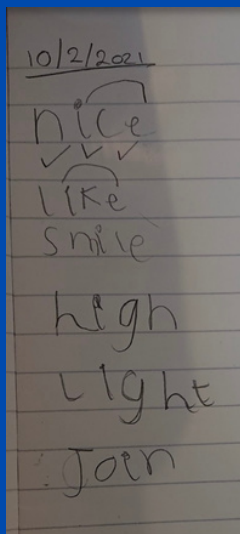 10/2/2021
nice
like
smile
high
Light
Join